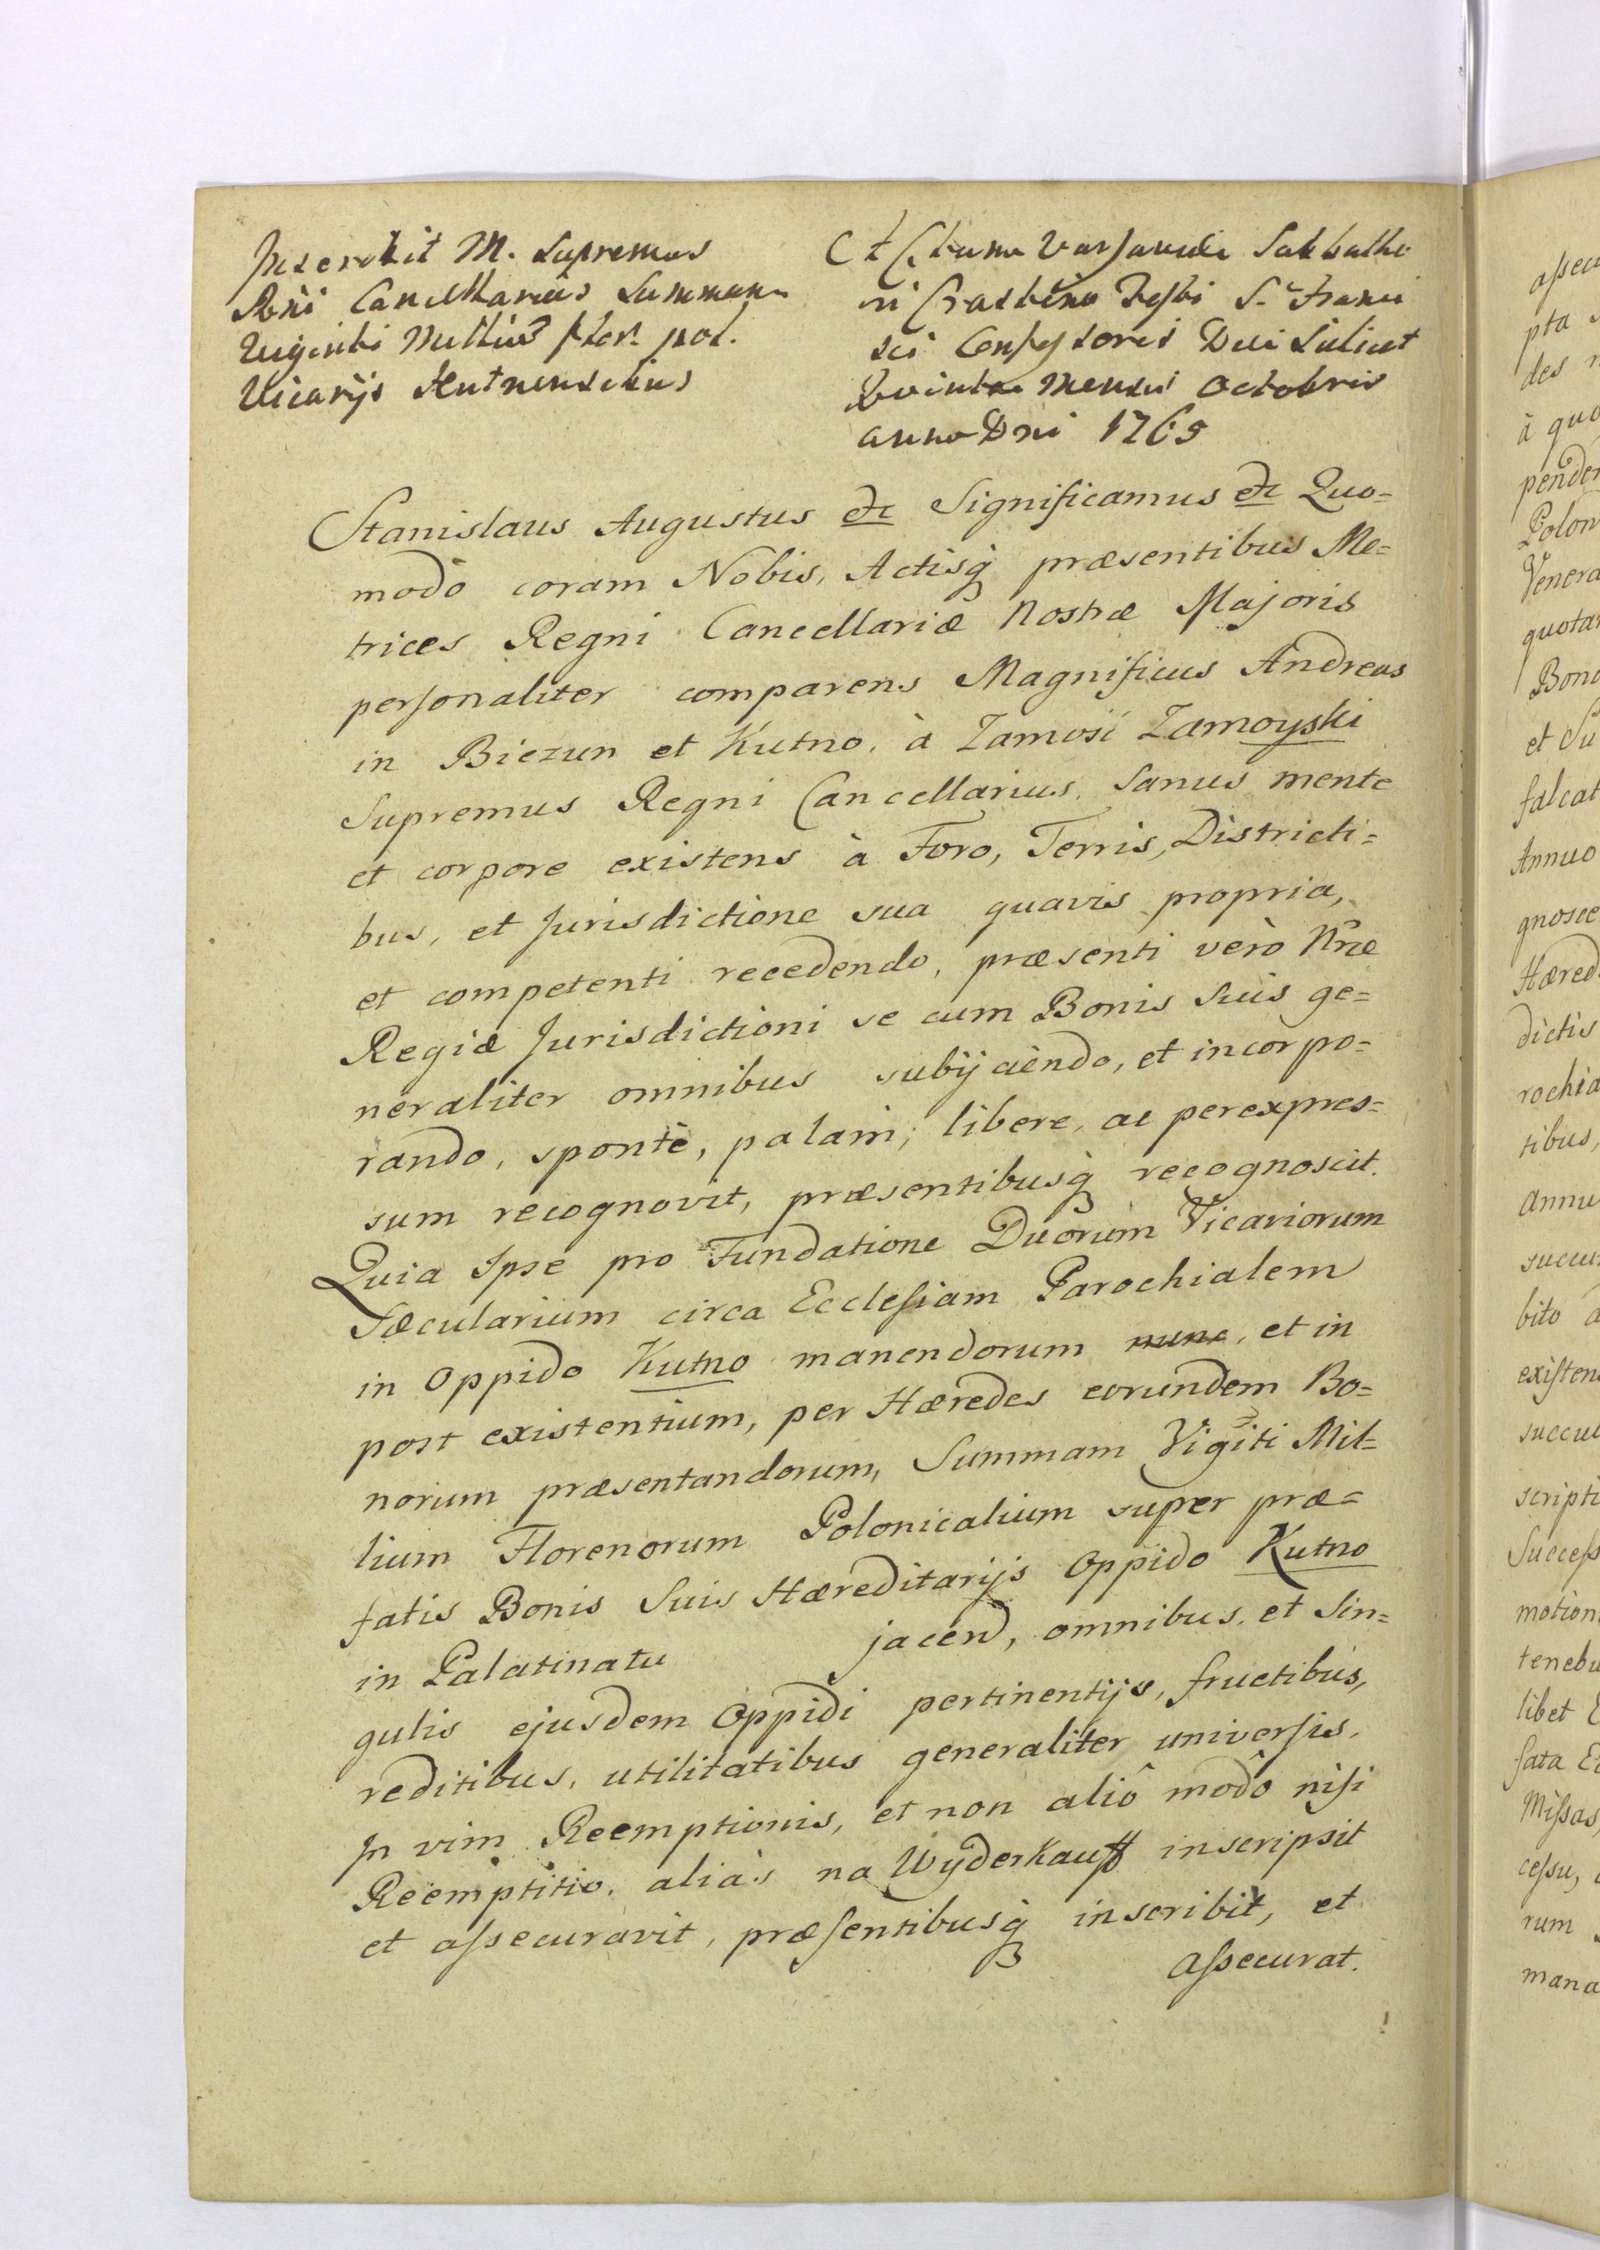 Inscribit M. Supremus
Regni Cancellarius Summam
Viginti Millium flor. pol.
Vicarijs Kutnensibus
Actum Varsaviae Sabbatho
in Crastino Festi S. Franci
sci Confessoris Die scilicet
Quinta Mensis Octobris
anno Dni 1765
Stanislaus Augustus etc Significamus etc Quo=
modo coram Nobis, Actisq́ præsentibus Me=
trices Regni Cancellariæ Nostræ Majoris
personaliter comparens Magnificus Andreas
in Biezun et Kutno, à Zamość Zamoyski
Supremus Regni Cancellarius, sanus mente
et corpore existens à Foro, Terris, Districti=
bus, et Jurisdictione sua quavis propria,
et competenti recedendo, præsenti verò Nræ
Regiæ Jurisdictioni se cum Bonis Suis ge=
neraliter omnibus subijciendo, et incorpo=
rando, sponte, palam, libere, ac perexpres=
sum recognovit, præsentibusq́ recognoscit.
Quia Ipse pro Fundatione Duorum Vicariorum
Sæcularium circa Ecclesiam Parochialem
in Oppido Kutno manendorum nunc, et in
post existentium, per Hæredes eorundem Bo=
norum præsentandorum, Summam Vigiti Mil=
lium Florenorum Polonicalium super præ=
fatis Bonis Suis Hæreditarijs Oppido Kutno
in Palatinatu jacen, omnibus, et Sin=
gulis ejusdem Oppidi pertinentijs, fructibus,
reditibus, utilitatibus generaliter universis,
In vim Reemptionis, et non aliô modô nisi
Reemptitio, aliàs na Wyderkauff inscripsit
et assecuravit, præsentibusq́ inscribit, et
assecurat.
assecu
pta
des
à quo
penden
Polon
Venera
quotan
Bono
et Su
falcat
Annuo
gnosce
Hæred
dictis
rochia
tibus,
annu
succu
bito a
existen
succu
scripti
Success
motion
tenebu
libet E
fata Ec
Missas,
cessu,
rum
mana